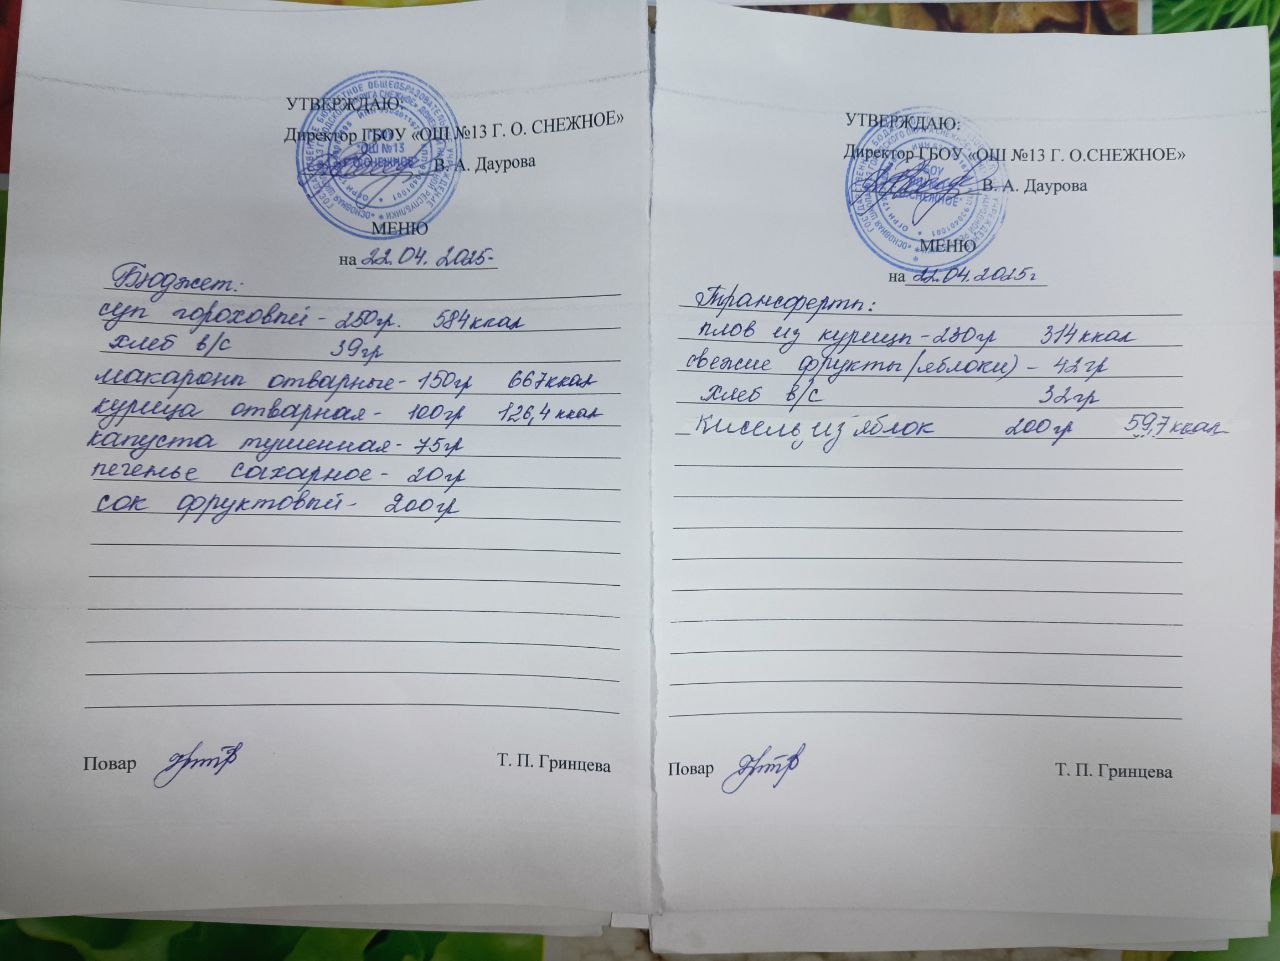 УТВЕРЖДАЮ:
Директор ГБОУ «ОШ №13 Г. О. СНЕЖНОЕ»
В. А. Даурова
МЕНЮ
на 22.04.2025-
Бюджет:
суп гороховый - 250гр. 584ккал
хлеб в/с 39гр
макароны отварные - 150гр 667ккал
курица отварная - 100гр 126,4ккал
капуста тушенная - 75гр
печенье сахарное - 20гр
сок фруктовый - 200гр
Повар
Т. П. Гринцева
УТВЕРЖДАЮ:
Директор ГБОУ «ОШ №13 Г. О.СНЕЖНОЕ»
В. А. Даурова
МЕНЮ
на 22.04.2025г
Трансферты:
плов из курицы - 230гр 314ккал
свежие фрукты (яблоки) - 42гр
хлеб в/с 32гр
Кисель из яблок 200гр 59,7ккал
Повар
Т. П. Гринцева